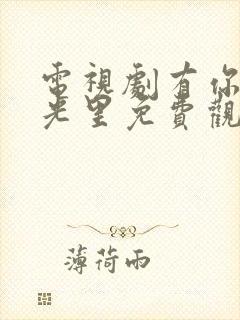 電視劇有你
光里免費觀
薄荷雨